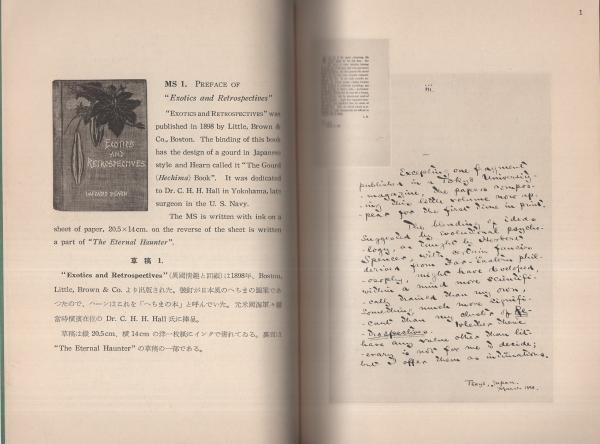 MS 1. PREFACE OF
"Exotics and Retrospectives"
"EXOTICS AND RETROSPECTIVES" was
published in 1898 by Little, Brown &
Co., Boston. The binding of this book
has the design of a gourd in Japanese
style and Hearn called it "The Gourd
(Hechima) Book". It was dedicated
to Dr. C. H. H. Hall in Yokohama, late
surgeon in the U. S. Navy.
The MS is written with ink on a
sheet of paper, 20.5×14cm. on the reverse of the sheet is written
a part of "The Eternal Haunter".
EXOTICS
AND
RETROSPECTIVES
LAFCADIO HEARN
草稿 1.
"Exotics and Retrospectives"(異國情趣と回顧)は1898年、Boston,
Little, Brown & Co. より出版された。装釘が日本風のへちまの圖案であ
つたので、ハーンはこれを「へちまの本」と呼んでいた。元米國海軍々醫
當時橫濱在住の Dr. C. H. H. Hall 氏に捧呈。
草稿は縱 20.5cm, 橫 14cm の洋一枚紙にインクで書れてゐる。裏面は
"The Eternal Haunter" の草稿の一部である。
1
iii.
Excepting one fragment
published in a Tokyo University-
magazine, the papers compos-
ing this little volume now ap-
pear for the first time in print.
The blending of ideas
suggested by evolutional psycho-
logy, as taught by Herbert
Spencer, with certain fancies
derived from Far-Eastern phil-
osophy, might have developed,
within a mind more scientifi-
cally trained than my own,
something much more signifi-
cant than my cluster of Re-
trospectives. Whether these
have any value other than lit-
erary is not for me to decide;
but I offer them as intimations.
Tokyo, Japan.
March 1898.